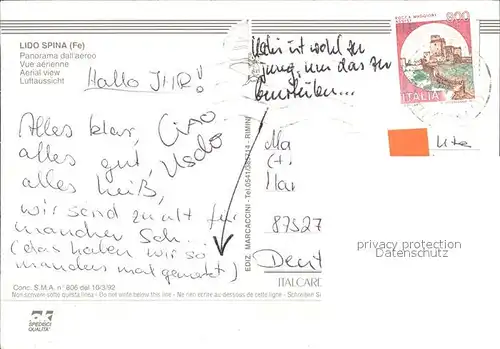 LIDO SPINA (Fe)
Panorama dall'aereo
Vue aérienne
Aerial view
Luftaussicht
Hallo IHR!
Alles klar,
alles gut,
alles heiß,
wir sind zu alt für
mancher Sch...
(das haben wir so
manders mal gemerkt)
Ciao
ist wohl zu
jung, um das zu
beurteilen...
ROCCA MAGGIORE
800
ITALIA
Ma
Mar
87527
Deut
privacy protection
Datenschutz
ITALCARD
EDIZ. MARCACCINI - Tel. 0541/ - RIMINI
Conc. S.M.A. n° 606 del 10/3/92
Non scrivere sotto questa linea - Do not write below this line - Ne rien écrire au dessous de cette ligne - Schreiben S
SPEDISCI
QUALITA'